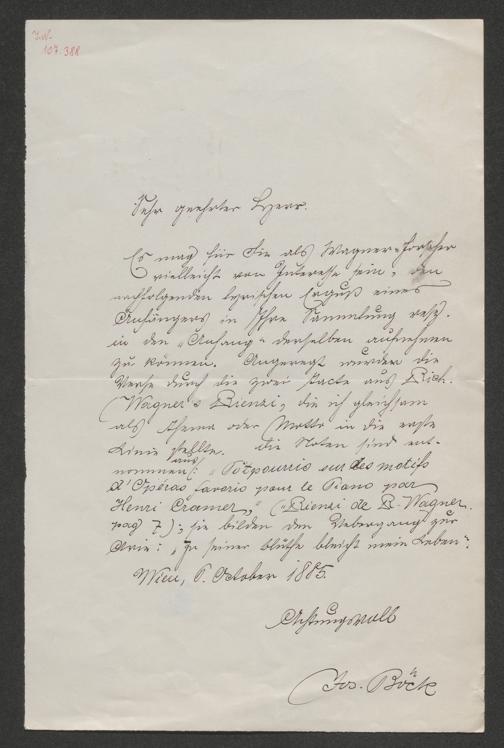 I.N.
107.388
Sehr geehrter Herr.
Es mag für Sie als Wagner-Forscher
vielleicht von Interesse sein, den
nachfolgenden lyrischen Erguß eines
Anhängers in Ihre Sammlung resp.
in den „Anhang“ derselben aufnehmen
zu können. Angeregt wurden die
Verse durch die zwei Takte aus Rich.
Wagner's Rienzi, die ich gleichsam
als Thema oder Motto in die erste
Linie stellte. Die Noten sind ent-
nommen aus: „Potpourris sur des motifs
d'Opéras favoris pour le Piano par
Henri Cramer,“ („Rienzi de R. Wagner.
pag 7); sie bilden den Uebergang zur
Arie: „In seiner blüthe bleicht mein Leben“.
Wien, 6. October 1885.
Achtungsvoll
Jos. Böck